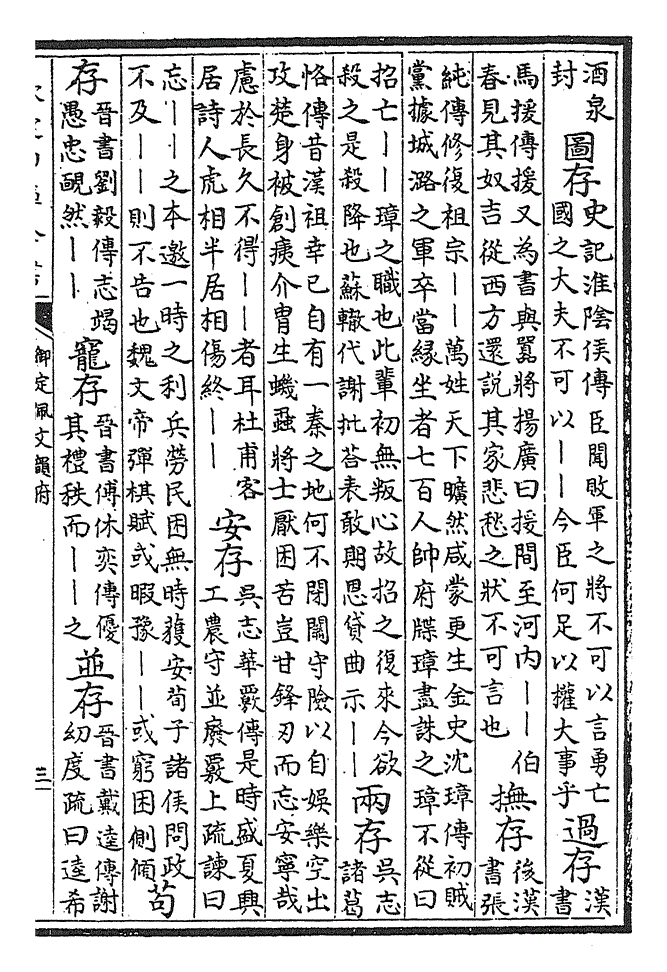 酒泉封圖存史記淮隂侯傳臣聞敗軍之將不可以言勇亡國之大夫不可以丨丨今臣何足以權大事乎過存漢書
馬援傳援又為書與嚻將揚廣曰援間至河内丨丨伯春見其奴吉從西方還說其家悲愁之狀不可言也撫存後漢書張
純傳修復祖宗丨丨萬姓天下曠然咸蒙更生金史沈璋傳初賊黨據城潞之軍卒當緣坐者七百人帥府牒璋盡誅之璋不從曰
招亡丨丨璋之職也此輩初無叛心故招之復來今欲殺之是殺降也蘇轍代謝批荅表敢期恩貸曲示丨丨兩存吳志諸葛
恪傳昔漢祖幸已自有一秦之地何不閉關守險以自娛樂空出攻楚身被創痍介胄生蟣蝨將士厭困苦豈甘鋒刃而忘安寧哉
慮於長久不得丨丨者耳杜甫客居詩人虎相半居相傷終丨丨安存吳志華覈傳是時盛夏興工農守並廢覈上疏諫曰
忘丨丨之本邀一時之利兵勞民困無時獲安荀子諸侯問政不及丨丨則不告也魏文帝彈棋賦或暇豫丨丨或窮困側傾苟
存晉書劉毅傳志竭愚忠靦然丨丨寵存晉書傅休奕傳優其禮秩而丨丨之並存晉書戴逵傳謝幼度疏曰逵希
御定佩文韻府
三